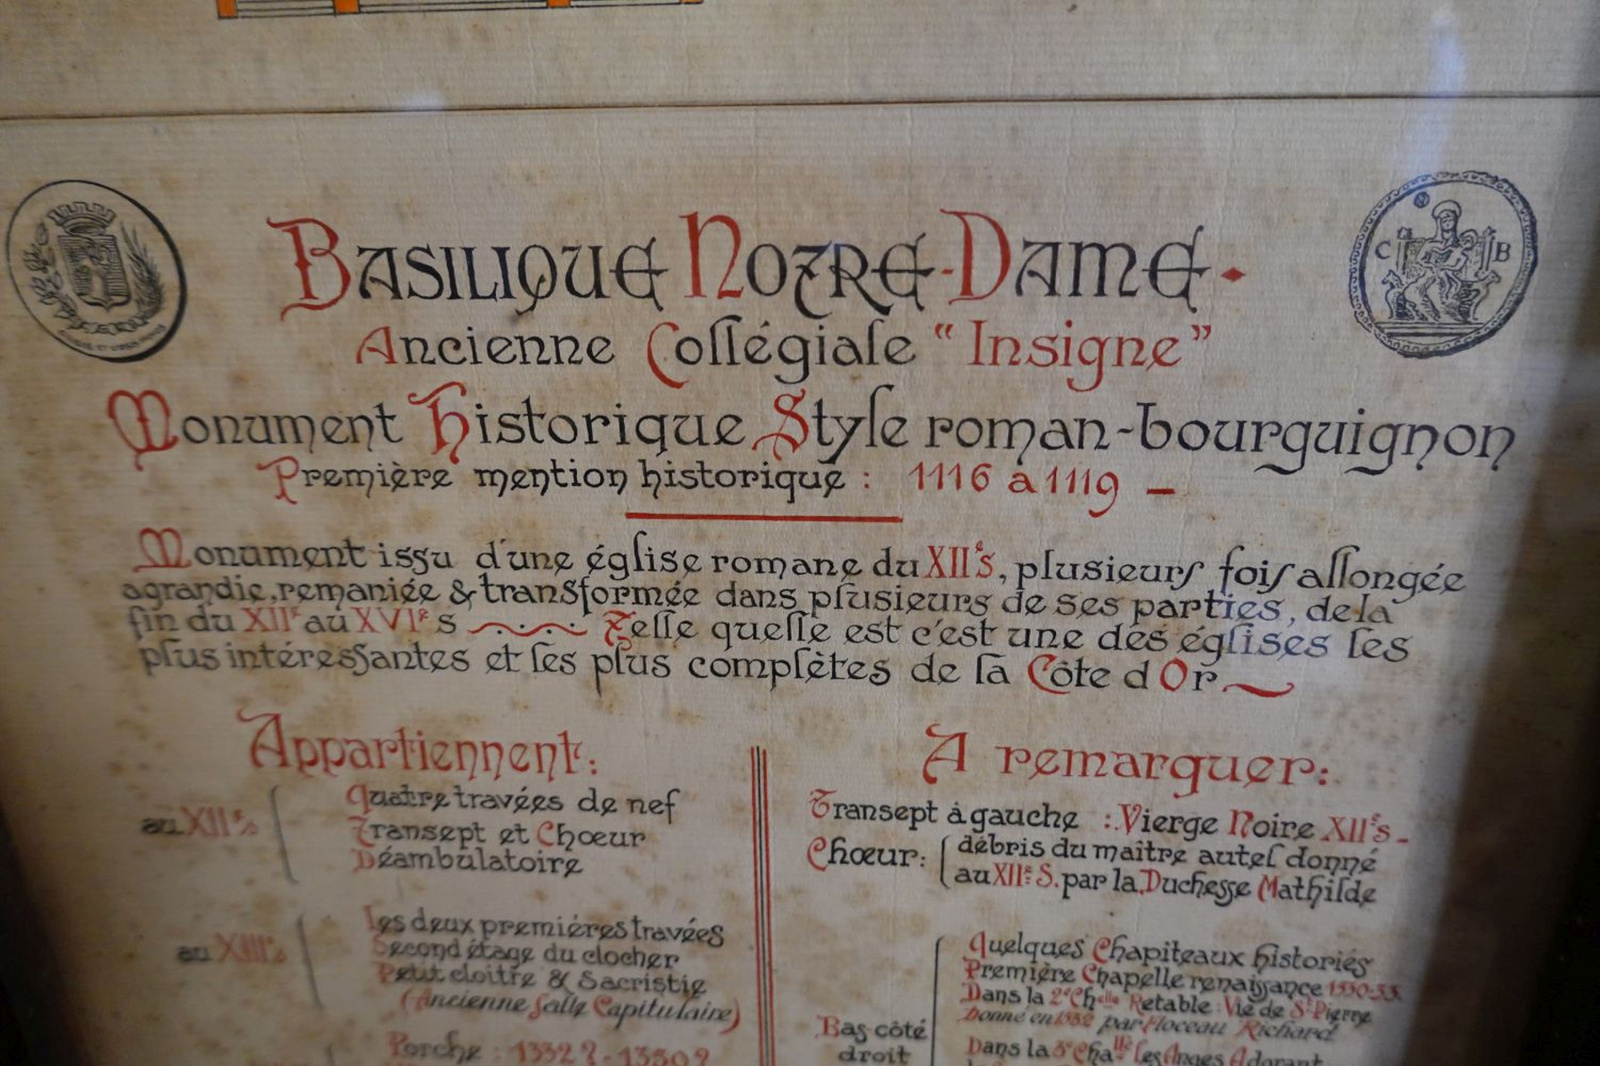 Basilique Notre-Dame
Ancienne Collégiale "Insigne"
Monument Historique Style roman-bourguignon
Première mention historique : 1116 à 1119 –
Monument issu d'une église romane du XIIe s, plusieurs fois allongée
agrandie, remaniée & transformée dans plusieurs de ses parties, de la
fin du XIIe au XVIe s Telle quelle est c'est une des églises les
plus intéressantes et les plus complètes de la Côte d Or
Appartiennent:
au XIIe s
Quatre travées de nef
Transept et Chœur
Déambulatoire
au XIIIe s
Les deux premières travées
Second étage du clocher
Petit cloitre & Sacristie
(Ancienne Salle Capitulaire)
Porche : 1332?-1350?
A remarquer:
Transept à gauche : Vierge Noire XIIe s-
Chœur: débris du maitre autel donné
au XIIe S. par la Duchesse Mathilde
Bas-côté
droit
Quelques Chapiteaux historiés
Première Chapelle renaissance 1530-33
Dans la 2e Chelle Retable : Vie de St Pierre
par Floceau Richard
Dans la 3e Challe les Anges Adorant
C B